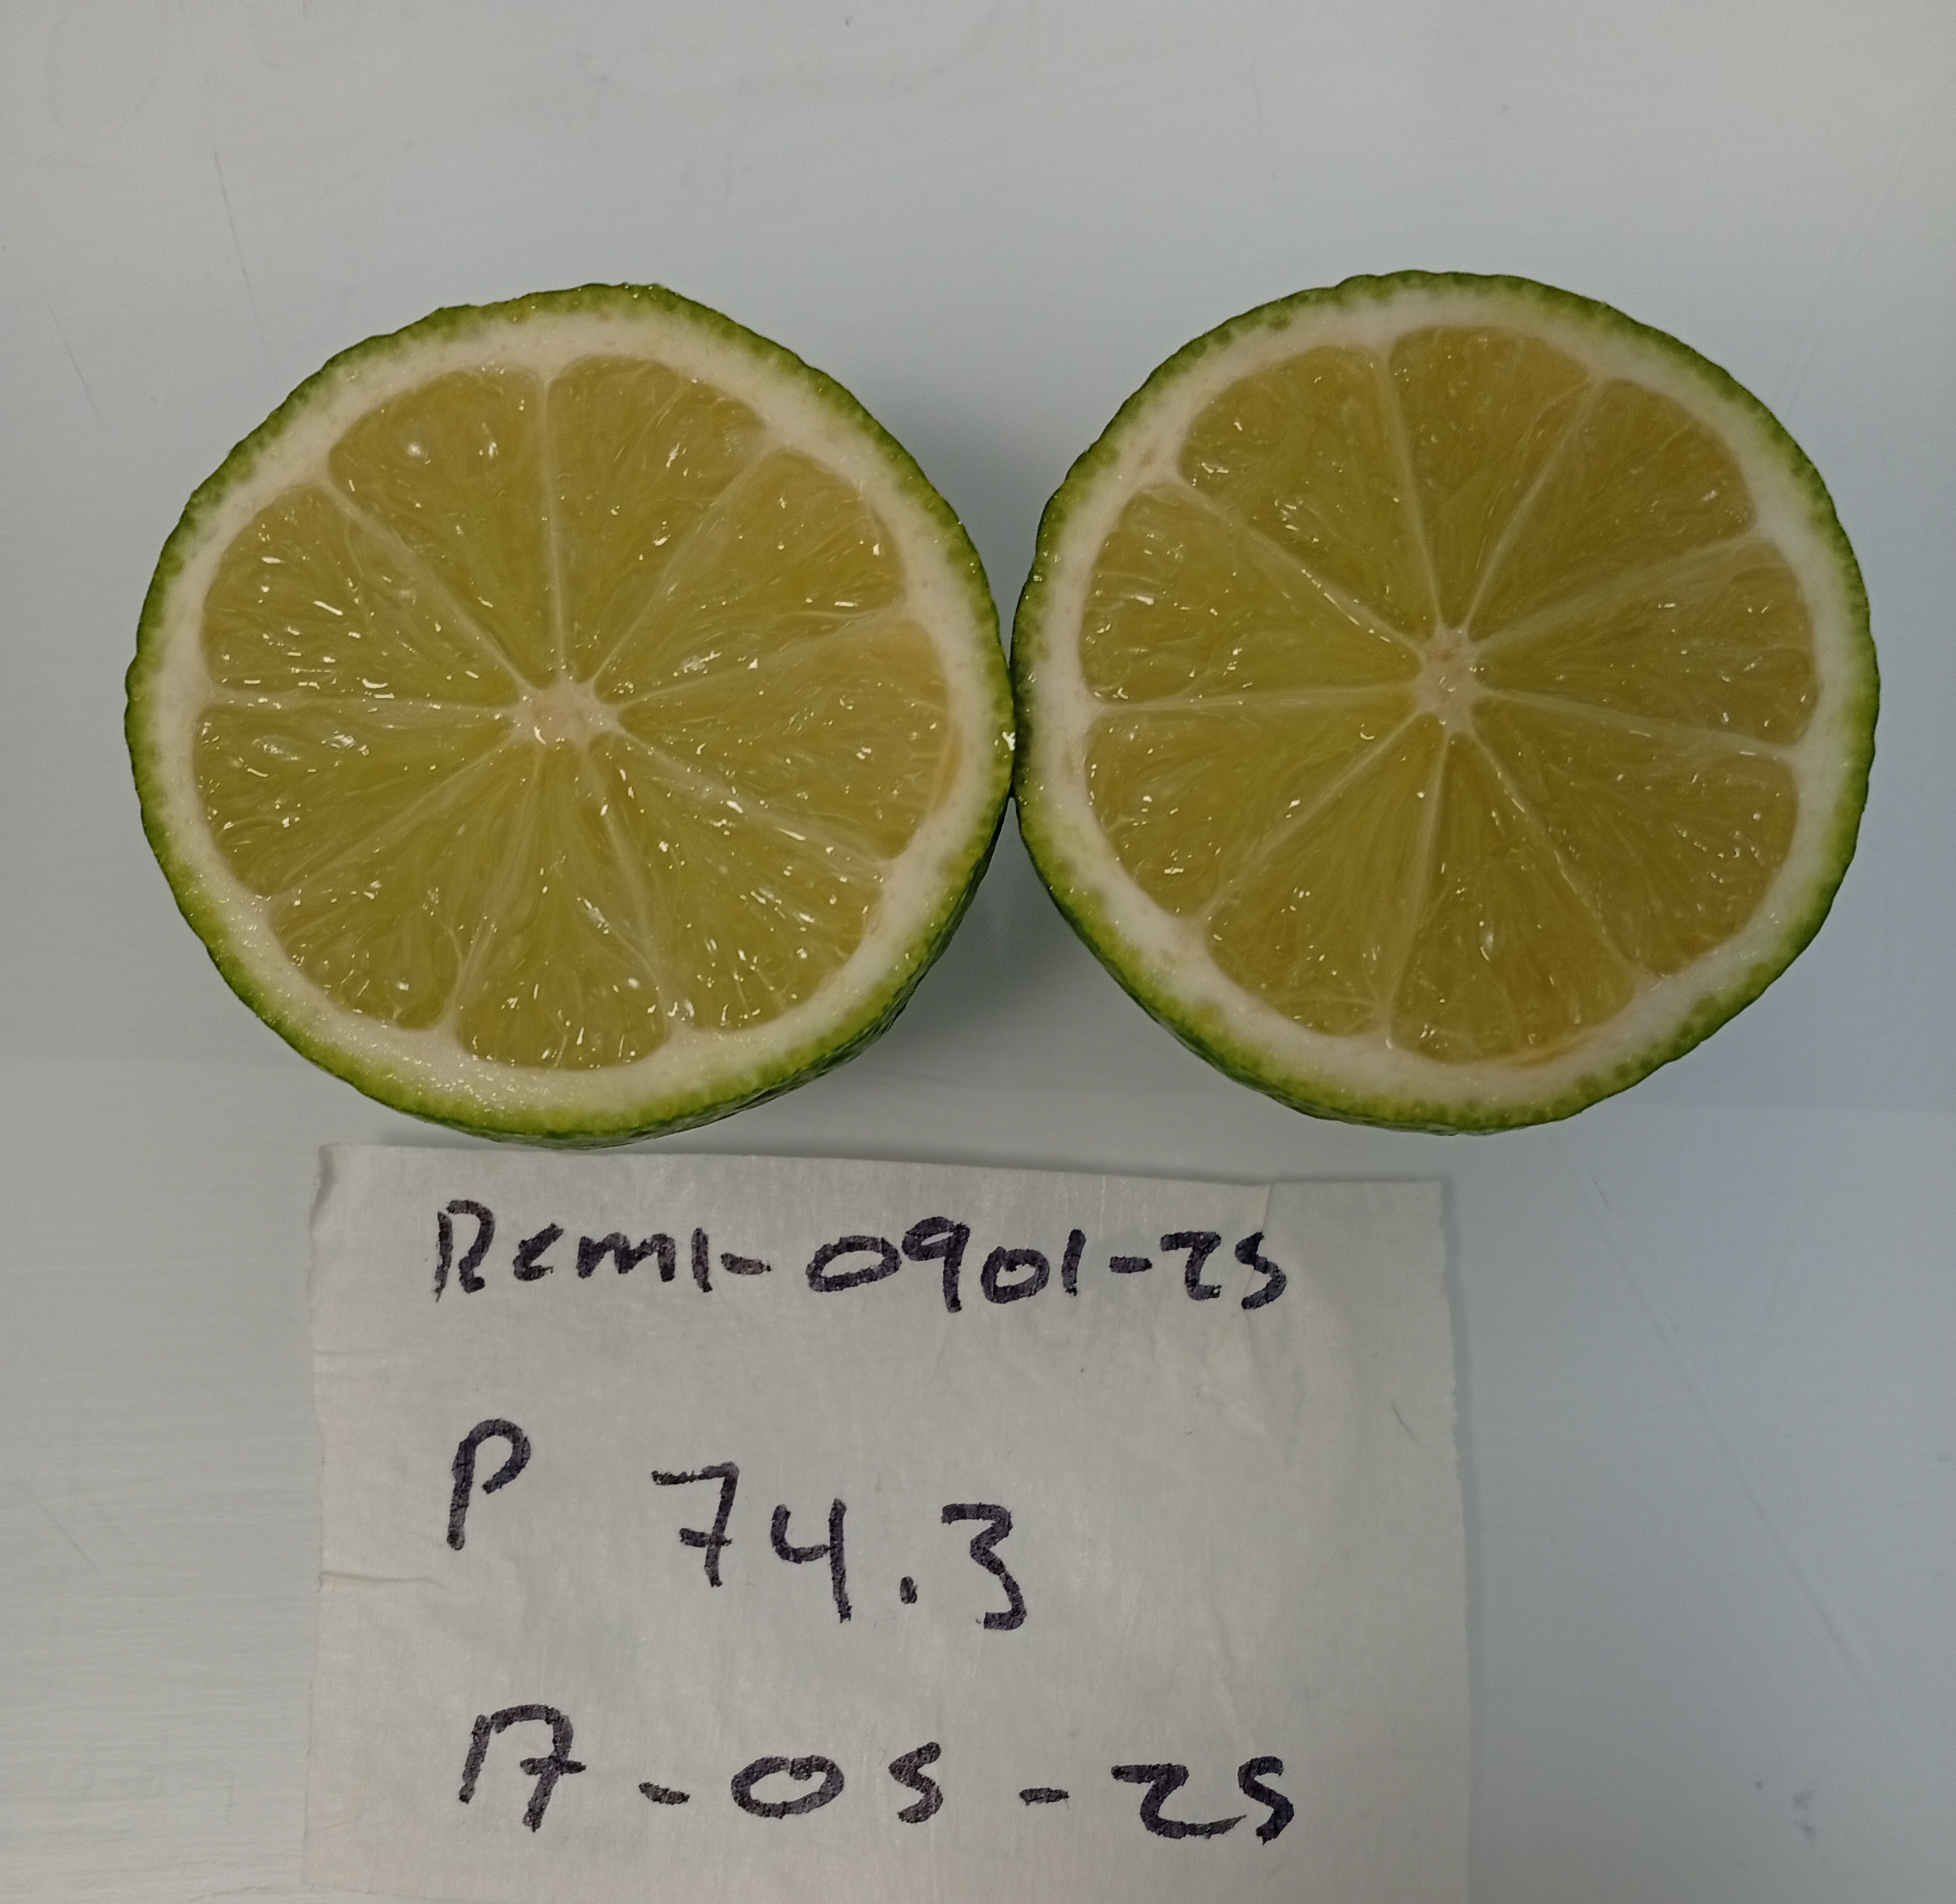 Rcml-0901-25
P 74.3
17-05-25